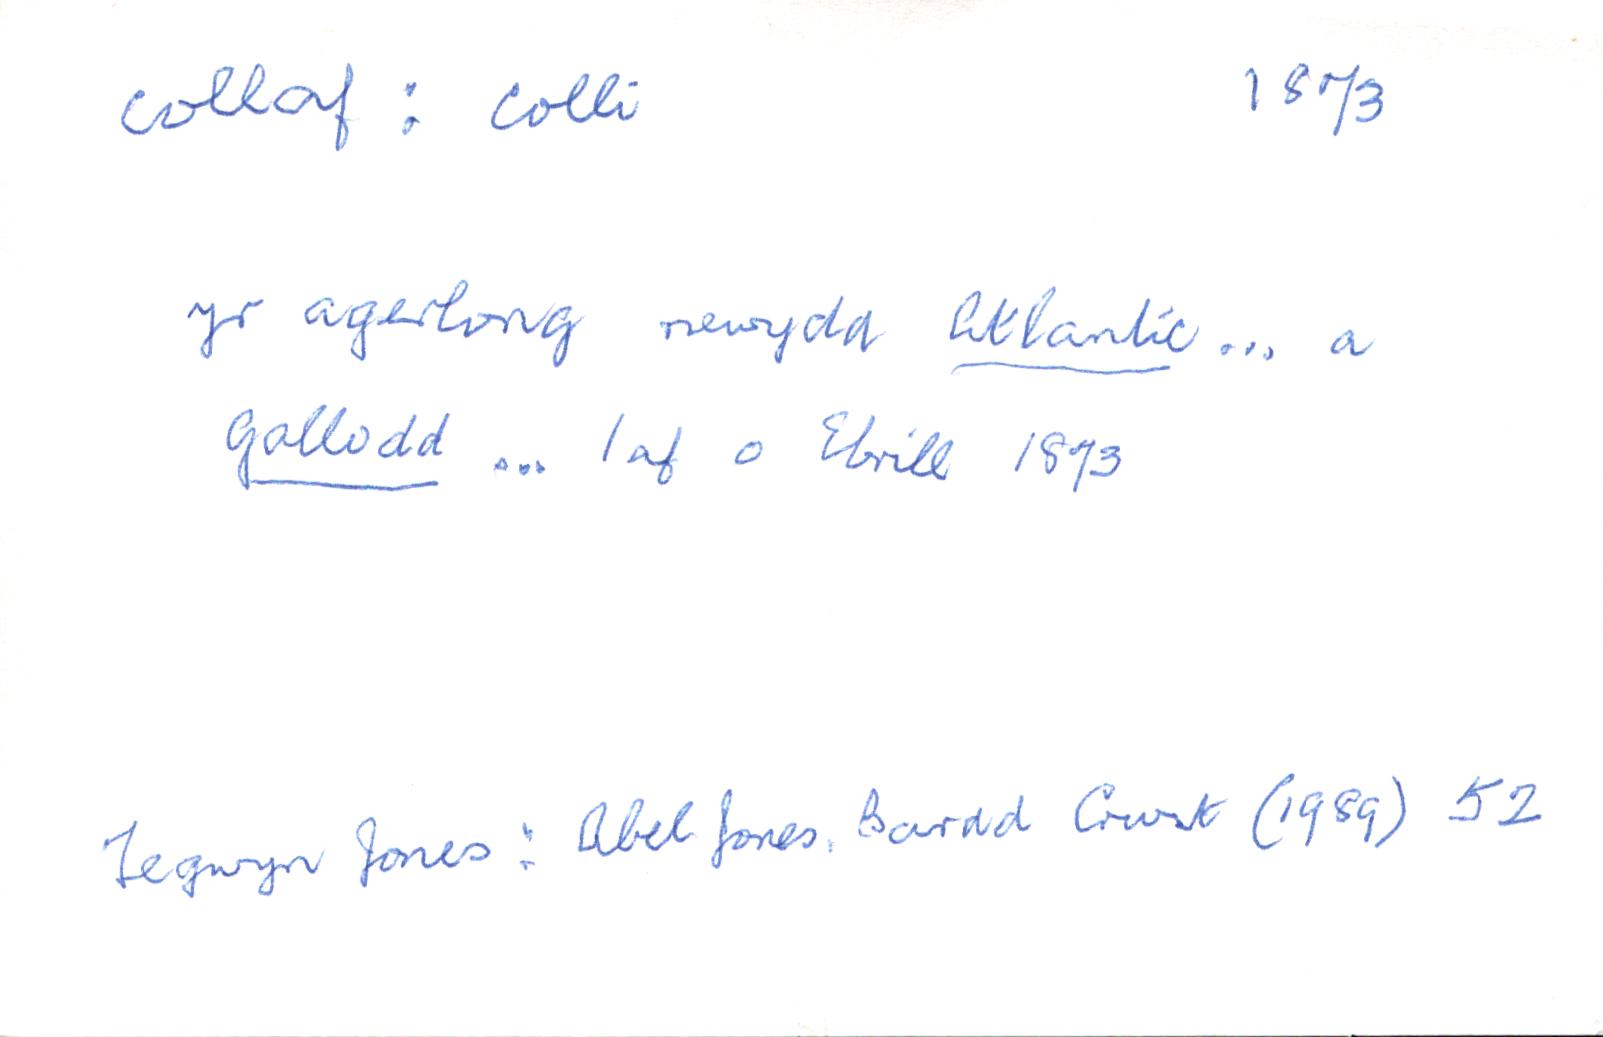 collaf : colli 1873
yr agerlong newydd Atlantic ... a
gollodd ... 1af o Ebrill 1873
Tegwyn Jones : Abel Jones, Bardd Crwst (1989) 52